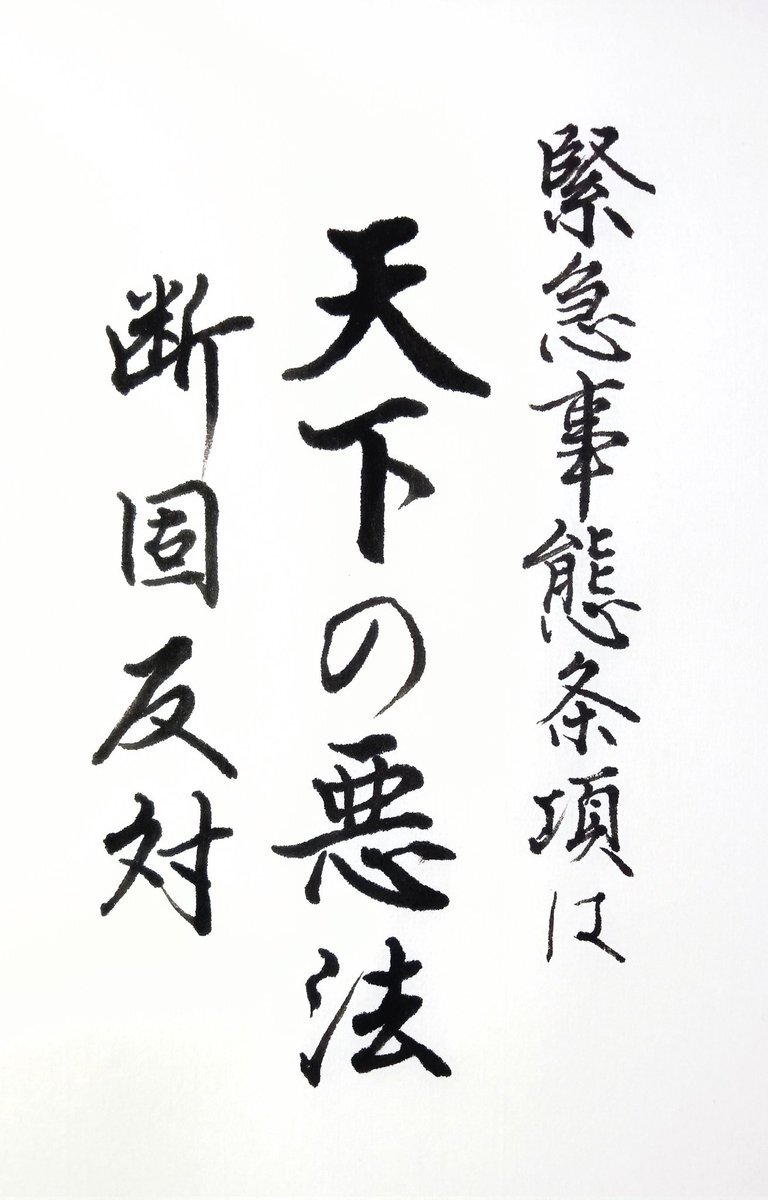 緊急事態条項は
天下の悪法
断固反対